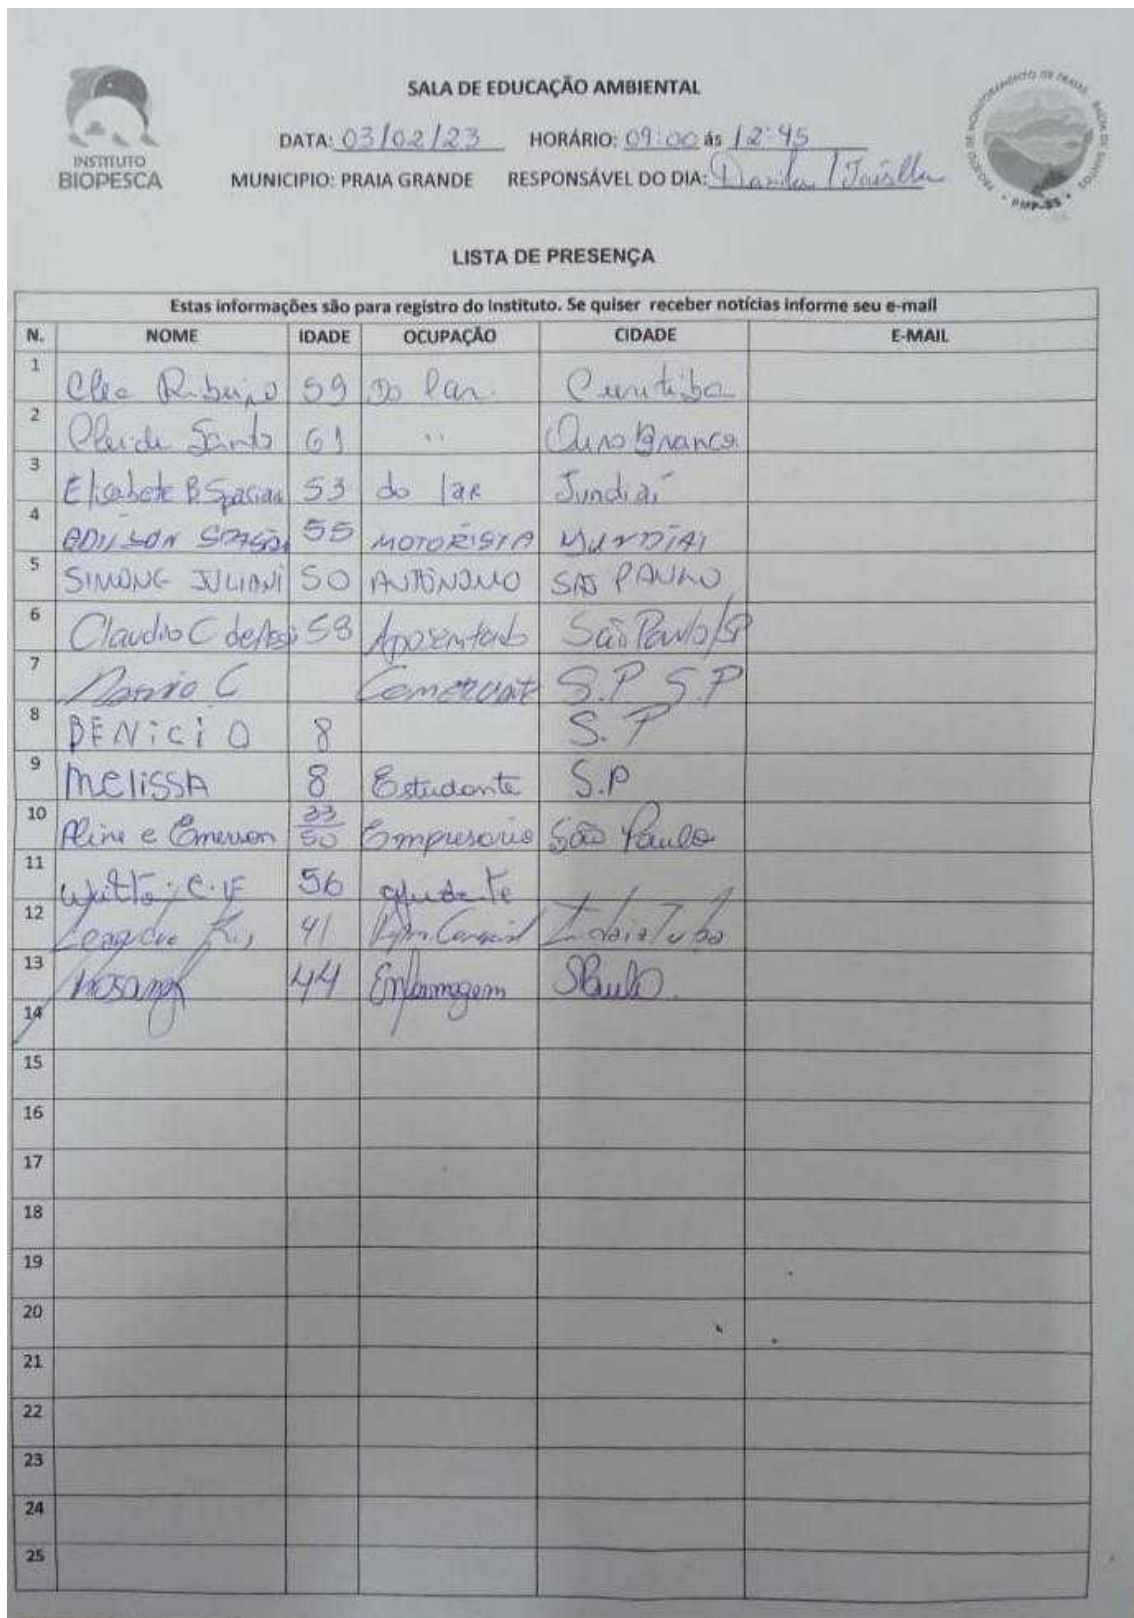 INSTITUTO
BIOPESCA
SALA DE EDUCAÇÃO AMBIENTAL
DATA: 03/02/23 HORÁRIO: 09:00 ás 12:45
MUNICIPIO: PRAIA GRANDE RESPONSÁVEL DO DIA:
PROJETO DE MONITORAMENTO DE PRAIAS BACIA DE SANTOS
PMP-BS
LISTA DE PRESENÇA
Estas informações são para registro do Instituto. Se quiser receber notícias informe seu e-mail
N. NOME IDADE OCUPAÇÃO CIDADE E-MAIL
1 Clea Ribeiro 59 Do Lar. Curitiba
2 Cleide Santo 61 " Ouro Branco.
3 Elisabete B 53 do lar Jundiaí
4 EDILSON 55 MOTORISTA JUNDIAI
5 SIMONE JULIANI 50 AUTÔNOMO SÃO PAULO
6 Claudio C de 58 Aposentado São Paulo/SP
7 C Comerciante S.P S.P
8 BENiCiO 8 S.P
9 MELiSSA 8 Estudante S.P
10 Aline e Emerson 33/50 Empresario São Paulo
11 56 ajudante
12 41 Indaiatuba
13 Rosang 44 Enfermagem SPaulo.
14
15
16
17
18
19
20
21
22
23
24
25